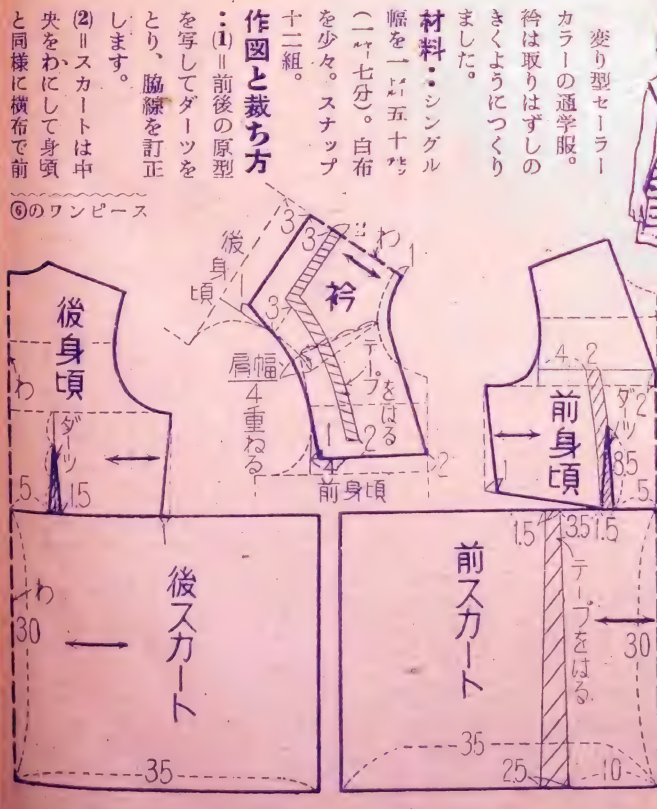 変り型セーラー
カラーの通学服。
衿は取りはずしの
きくようにつくり
ました。
材料：シングル
幅を一メートル五十センチ
（一ヤール七分）。白布
を少々。スナップ
十二組。
作図と裁ち方
：(1)＝前後の原型
を写してダーツを
とり、脇線を訂正
します。
(2)＝スカートは中
央をわにして身頃
と同様に横布で前
⑥のワンピース
後身頃
わ
ダーツ
.5
1.5
後身頃
3
3
2
わ
1
1
3
衿
テープをはる
肩幅
4重ねる
1
4
2
2
前身頃
4
2
前身頃
2
ダーツ
8.5
1
.5
後スカート
わ
30
35
前スカート
1.5
3.5
1.5
テープをはる
30
35
2.5
10